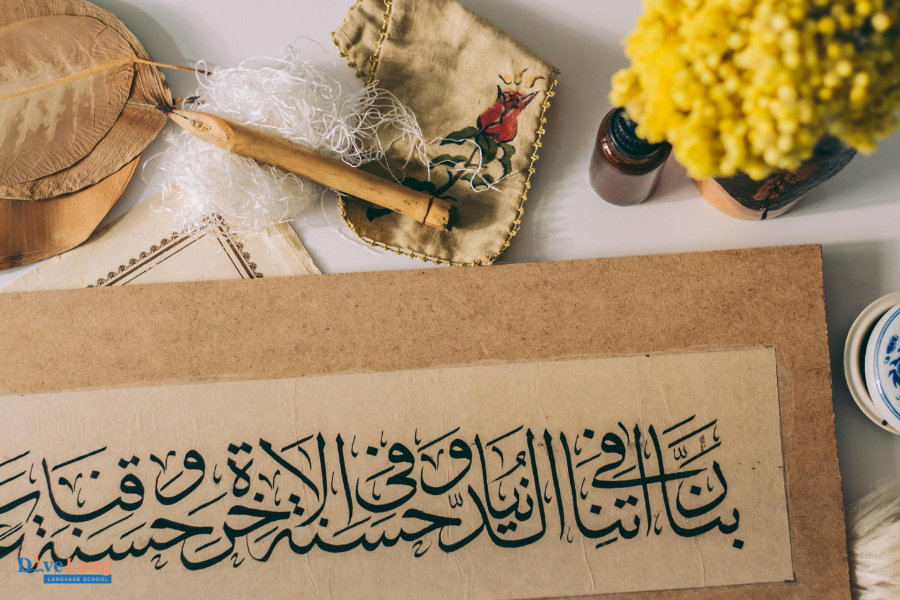 ربنا اتنا فی الدنیا حسنة و فی الاخرة حسنة و قنا
DiveLang
LANGUAGE SCHOOL